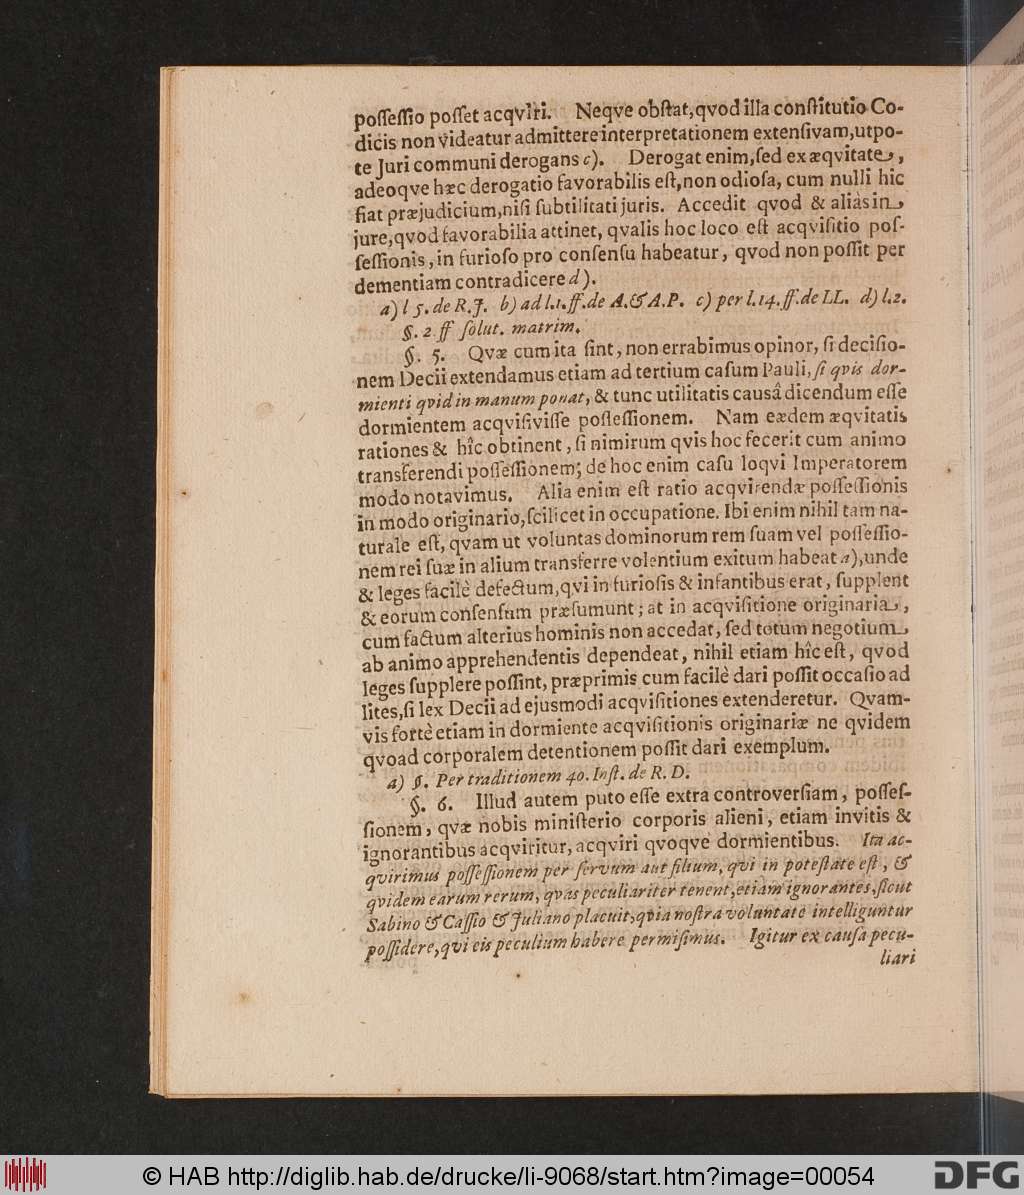 poſſeſſio poſſet acqviri. Neqve obſtat, qvod illa conſtitutio Co-
dicis non videatur admittere interpretationem extenſivam, utpo-
te Juri communi derogans c). Derogat enim, ſed ex æqvitate,
adeoqve hæc derogatio favorabilis eſt, non odioſa, cum nulli hic
fiat præjudicium, niſi ſubtilitati juris. Accedit qvod & aliàs in
jure, qvod favorabilia attinet, qvalis hoc loco eſt acqviſitio poſ-
ſeſſionis, in furioſo pro conſenſu habeatur, qvod non poſſit per
dementiam contradicere d).
a) l 5. de R. J. b) ad l. 1. ff. de A. & A. P. c) per l. 14. ff. de LL. d) l. 2.
§. 2 ff ſolut. matrim.
§. 5. Qvæ cum ita ſint, non errabimus opinor, ſi deciſio-
nem Decii extendamus etiam ad tertium caſum Pauli, ſi qvis dor-
mienti qvid in manum ponat, & tunc utilitatis causâ dicendum eſſe
dormientem acqviſiviſſe poſſeſſionem. Nam eædem æqvitatis
rationes & hîc obtinent, ſi nimirum qvis hoc fecerit cum animo
transferendi poſſeſſionem; de hoc enim caſu loqvi Imperatorem
modo notavimus. Alia enim eſt ratio acqvirendæ poſſeſſionis
in modo originario, ſcilicet in occupatione. Ibi enim nihil tam na-
turale eſt, qvam ut voluntas dominorum rem ſuam vel poſſeſſio-
nem rei ſuæ in alium transferre volentium exitum habeat a), unde
& leges facilè defectum, qvi in furioſis & infantibus erat, ſupplent
& eorum conſenſum præſumunt; at in acqviſitione originaria,
cum factum alterius hominis non accedat, ſed totum negotium
ab animo apprehendentis dependeat, nihil etiam hîc eſt, qvod
leges ſupplere poſſint, præprimis cum facilè dari poſſit occaſio ad
lites, ſi lex Decii ad ejusmodi acqviſitiones extenderetur. Qvam-
vis fortè etiam in dormiente acqviſitionis originariæ ne qvidem
qvoad corporalem detentionem poſſit dari exemplum.
a) §. Per traditionem 40. Inſt. de R. D.
§. 6. Illud autem puto eſſe extra controverſiam, poſſeſ-
ſionem, qvæ nobis miniſterio corporis alieni, etiam invitis &
ignorantibus acqviritur, acqviri qvoqve dormientibus. Ita ac-
qvirimus poſſeſſionem per ſervum aut filium, qvi in poteſtate eſt, &
qvidem earum rerum, qvas peculiariter tenent, etiam ignorantes, ſicut
Sabino & Caſſio & Juliano placuit, qvia noſtra voluntate intelliguntur
poſſidere, qvi eis peculium habere permiſimus. Igitur ex cauſa pecu-
liari
© HAB http://diglib.hab.de/drucke/li-9068/start.htm?image=00054
DFG